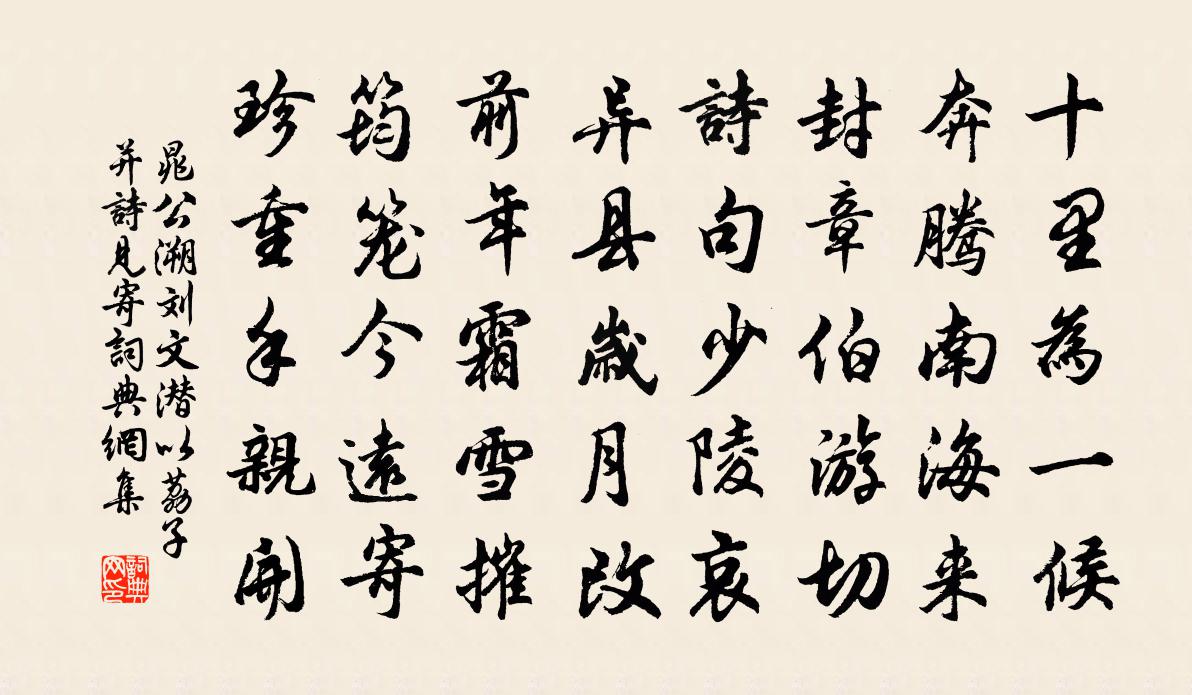 十里為一候
奔腾南海来
封章伯游切
詩句少陵哀
异县歲月改
前年霜雪摧
筠笼今遠寄
珍重手親開
晁公溯刘文潜以荔子
并詩見寄詞典網集
詞典网印